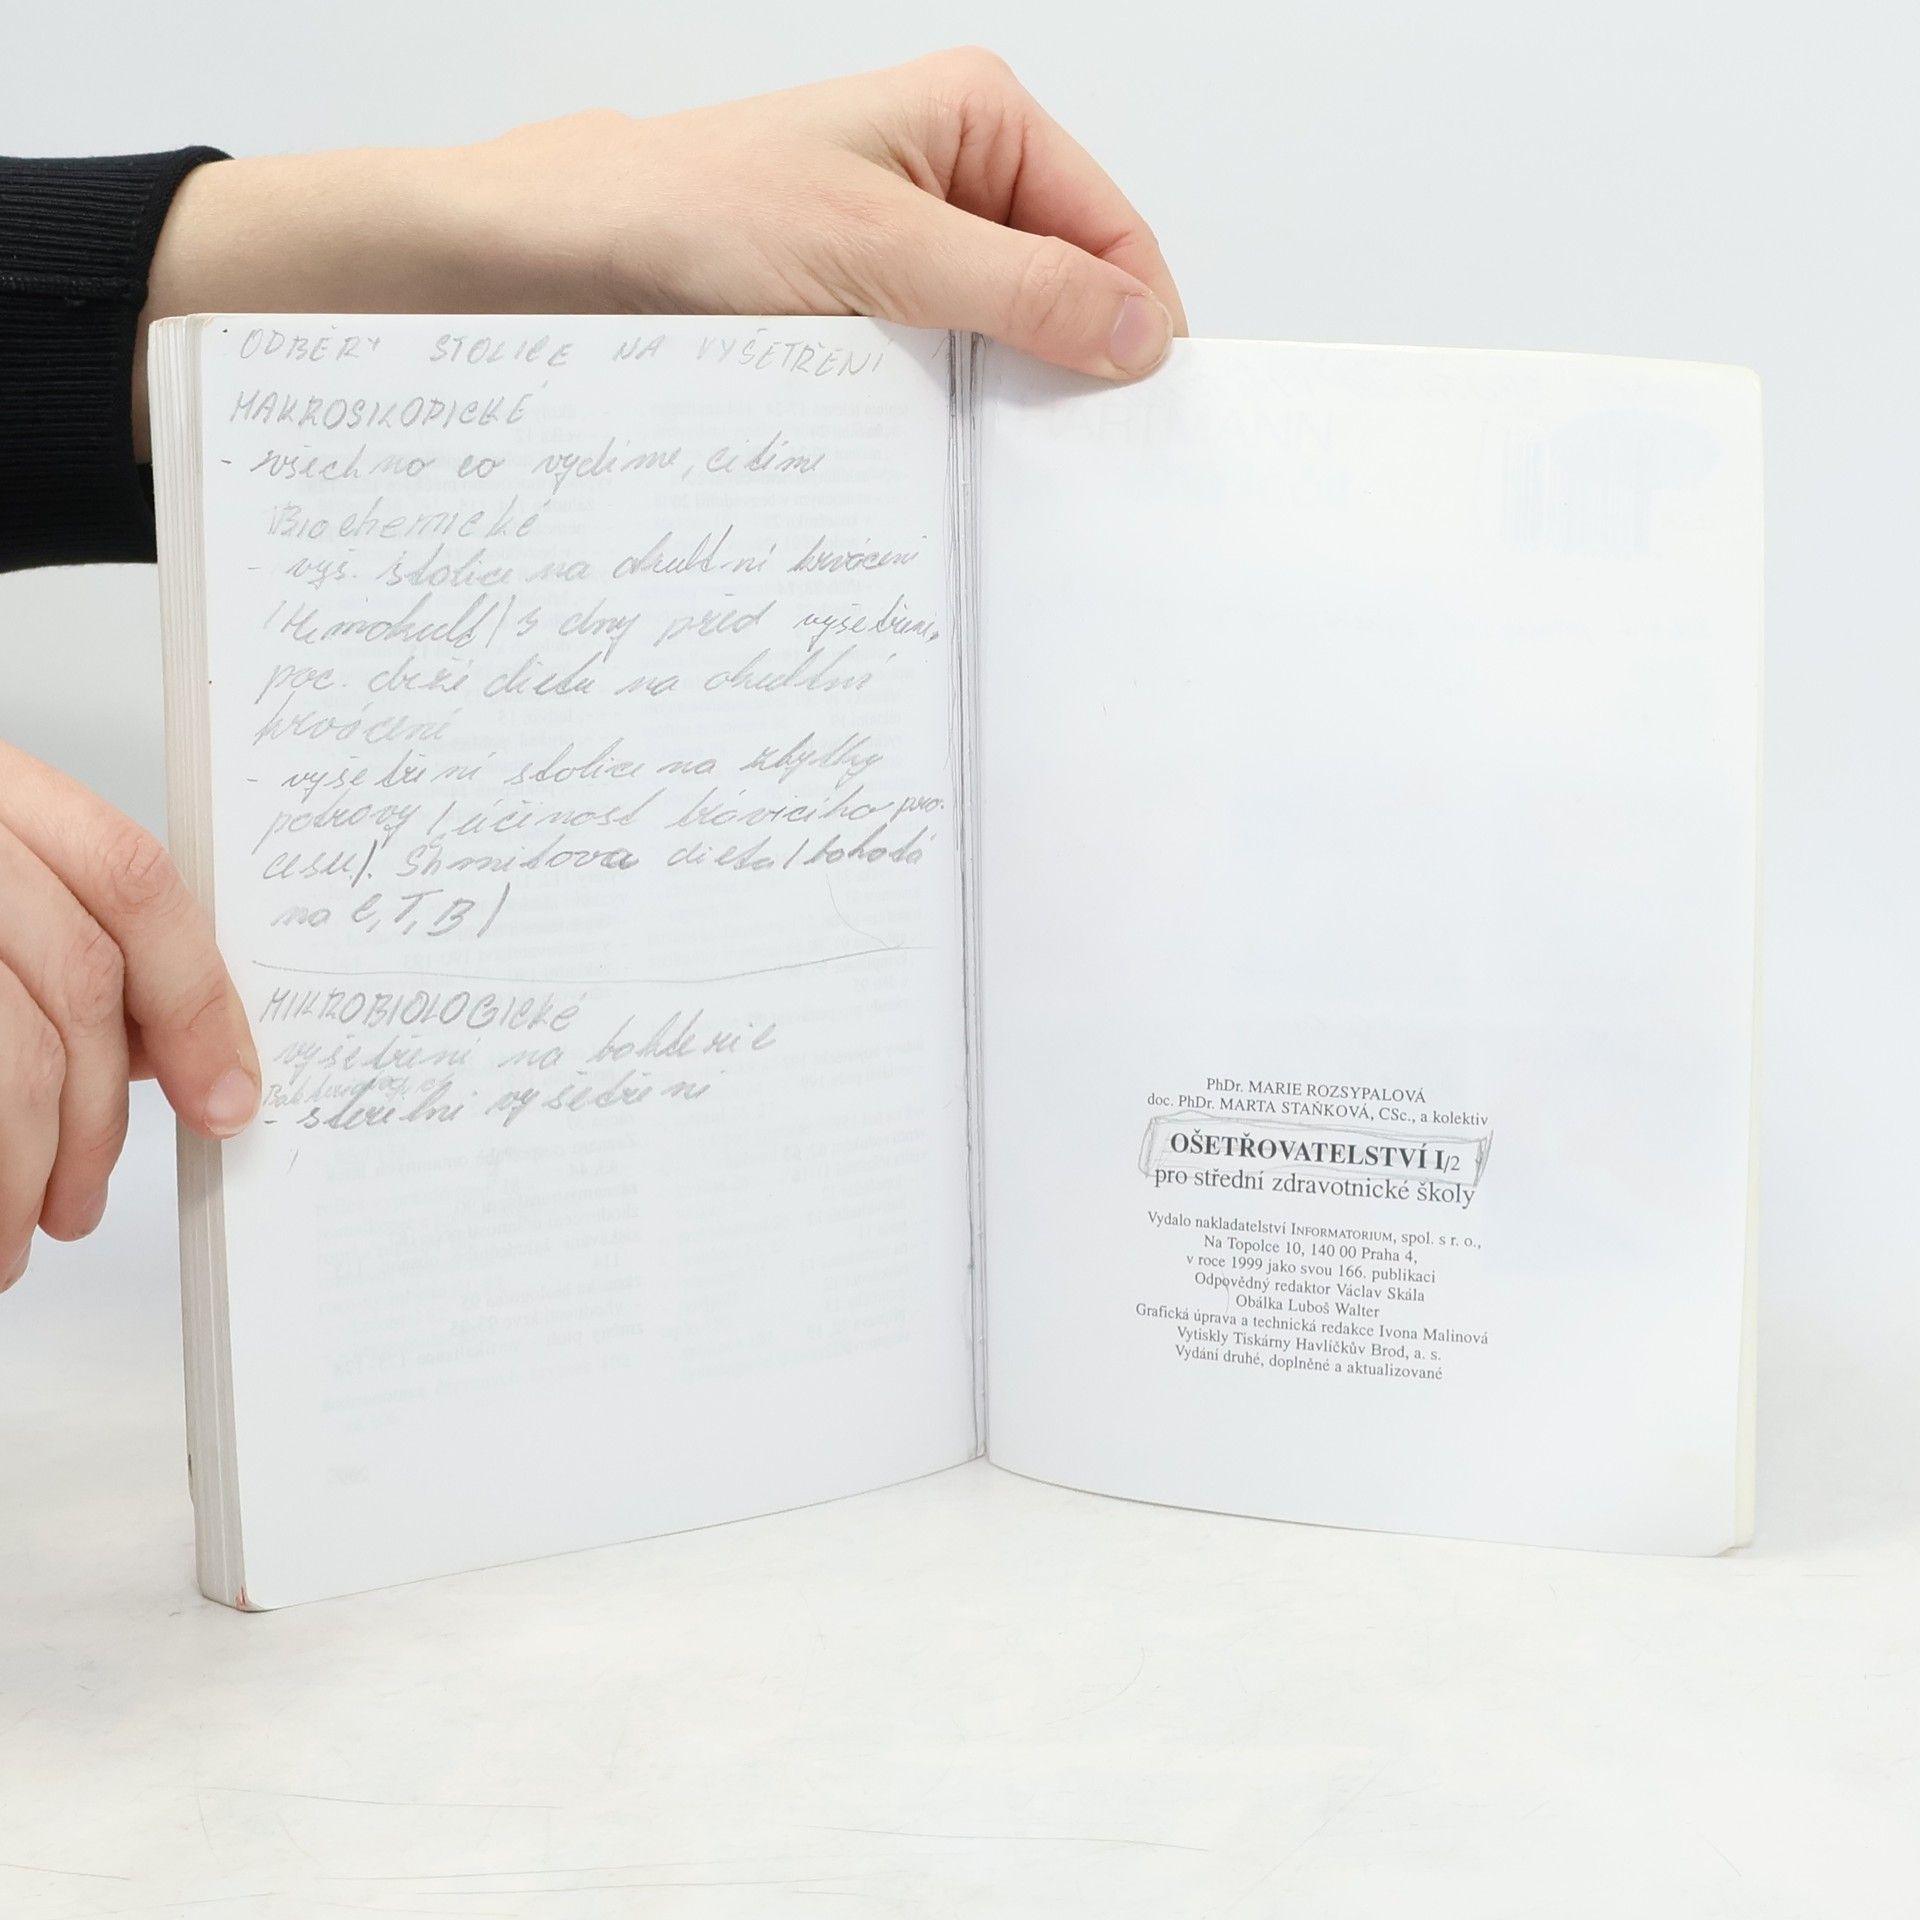 ODBĚRY STOLICE NA VYŠETŘENÍ
MAKROSKOPICKÉ
- všechno co vydíme, cítíme
Biochemické
- vyš. stolice na okultní krvácení
(Hemokult) 3 dny před vyšetření,
pac. drží dietu na okultní
krvácení
- vyšetření stolice na zbytky
potravy (účinost trávicího pro-
cesu). Shmitova dieta (bohatá
na C, T, B)
MIKROBIOLOGICKÉ
vyšetření na bakterie
- sterilní vyšetření
PhDr. MARIE ROZSYPALOVÁ
doc. PhDr. MARTA STAŇKOVÁ, CSc., a kolektiv
OŠETŘOVATELSTVÍ I/2
pro střední zdravotnické školy
Vydalo nakladatelství INFORMATORIUM, spol. s r. o.,
Na Topolce 10, 140 00 Praha 4,
v roce 1999 jako svou 166. publikaci
Odpovědný redaktor Václav Skála
Obálka Luboš Walter
Grafická úprava a technická redakce Ivona Malinová
Vytiskly Tiskárny Havlíčkův Brod, a. s.
Vydání druhé, doplněné a aktualizované